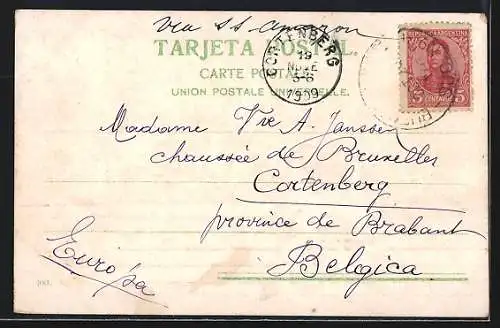 via ss amazon
TARJETA POSTAL.
CORTENBERG
19
NOVE
5-6
1909
CARTE POSTALE
UNION POSTALE UNIVERSELLE.
REPUBLICA ARGENTINA
5 CENTAVOS 5
Madame Vve A. Janssen
chaussée de Bruxelles
Cortenberg
province de Brabant
Európa
Belgica